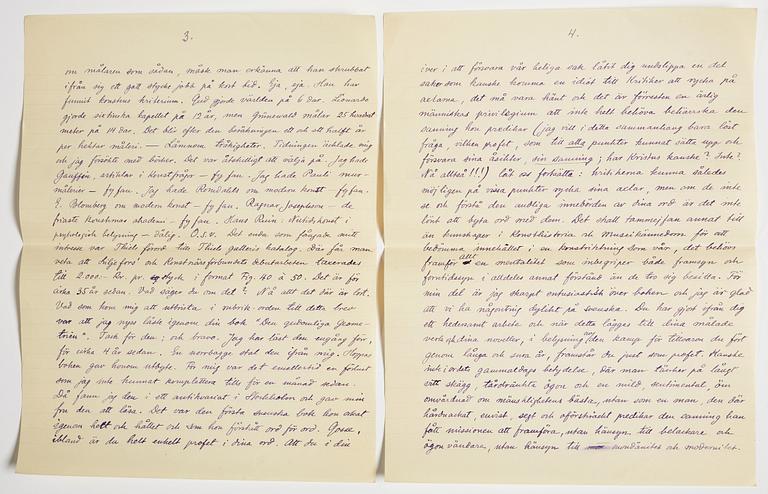 3.
om målaren som sådan, måste man erkänna att han skrubbat
ifrån sig ett gott stycke jobb på kort tid. Oja, oja. Han har
funnit konstens kriterium. Gud gjorde världen på 6 dar. Lionardo
gjorde sixtinska kapellet på 12 år, men Grünewald målar 25 kvadrat
meter på 14 dar. Det blir efter den beräkningen ett och ett halft år
per hektar måleri. — Lämnom tråkigheter. Tidningen äcklade mig
och jag försökte med böcker. Det var åtskilligt att välja på. Jag hade
Gauffin, artiklar i konstfrågor — fy fan. Jag hade Pauli mur-
målerier — fy fan. Jag hade Romdahls om modern konst — fy fan.
G. Blomberg om modern konst — fy fan. Ragnar Josephson — de
friaste konsternas akademi — fy fan. Hans Ruin: Nutidskonst i
psykologisk belysning — Dålig. O.s.v. Det enda som fångade mitt
intresse var Thiels förord till Thiels galleris katalog. Där får man
veta att Liljefors' och Konstnärsförbundets debutarbeten taxerades
till 2.000:- kr. pr. styck i format Fig. 40 à 50. Det är för
cirka 35 år sedan. Vad säger du om det? Nå allt det där är lort.
Vad som kom mig att utbrista i rubrik-orden till detta brev
var att jag nyss läste igenom din bok "Den gudomliga geome-
trien". Tack för den; och bravo. Jag har läst den en gång förr,
för cirka 4 år sedan. En norrbagge stal den ifrån mig. Hoppas
boken gav honom utbyte. För mig var det emellertid en förlust
som jag inte kunnat komplettera till för en månad sedan.
Då fann jag den i ett antikvariat i Stockholm och gav min
fru den att läsa. Det var den första svenska bok hon orkat
igenom helt och hållet och som hon förstått ord för ord. Gosse,
ibland är du helt enkelt profet i dina ord. Att du i din
4.
iver i att försvara vår heliga sak låtit dig undslippa en del
saker som kanske komma en idiot till kritiker att rycka på
axlarna, det må vara hänt och det är förresten en ärlig
människas privilegium att inte helt behöva behärska den
sanning hon predikar (jag vill i detta sammanhang bara löst
fråga, vilken profet, som till alla punkter kunnat sätta upp och
försvara sina åsikter, sin sanning; har Kristus kanske? Inte?
Nå alltså!!!) låt oss fortsätta: kritikerna kunna således
möjligen på vissa punkter rycka sina axlar, men om de inte
se och förstå den andliga innebörden av dina ord är det inte
lönt att byta ord med dem. Det skall tammejfan annat till
än kunskaper i Konsthistoria och Musikkännedom för att
bedömma innehållet i en konstriktning som vår, det behövs
framför allt en mentalitet som inbegriper både framsyn och
forntidssyn i alldeles annat förstånd än de tro sig besitta. För
min del är jag skarpt entusiastisk över boken och jag är glad
att vi ha någonting dylikt på svenska. Du har gjort ifrån dig
ett hedersamt arbete och när detta lägges till dina målade
verk och dina noveller, i belysning den kamp för tillvaron du fört
genom långa och sura år, framstår du just som profet. Kanske
inte i ordets gammaldags betydelse, där man tänker på långt
vitt skägg, tårdränkta ögon och en mild, sentimental, öm
omvårdnad om mänsklighetens bästa, utan som en man, den där
hårdnackat, envist, segt och oförskräckt predikar den sanning han
fått missionen att framföra, utan hänsyn till belackare och
ögonvändare, utan hänsyn till mondänitet och modernitet.